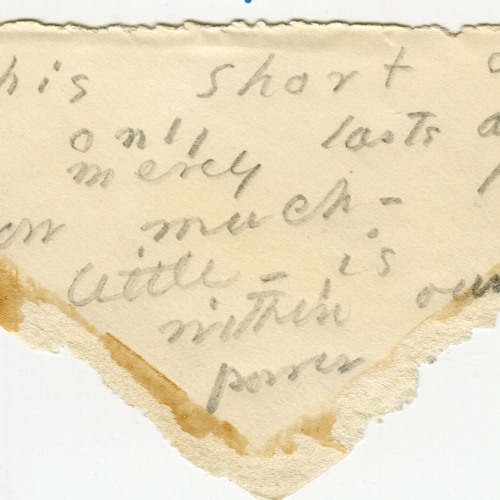 his short
only lasts a
merely
ow much -
little - is
within our
power